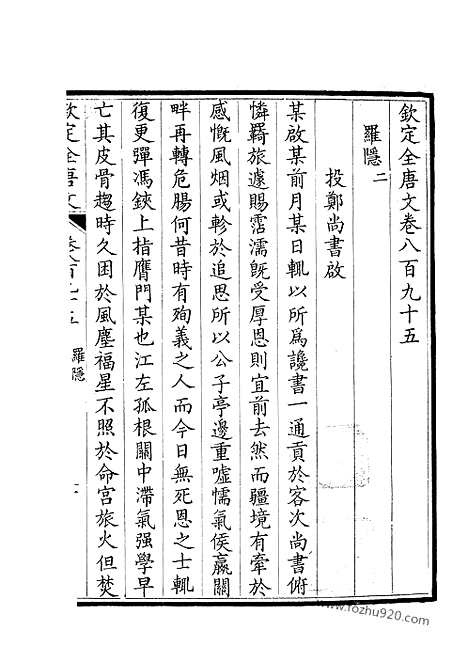 欽定全唐文卷八百九十五
羅隱二
投鄭尚書啟
某啟某前月某日輒以所爲讒書一通貢於客次尚書俯
憐羇旅遽賜霑濡旣受厚恩則宜前去然而疆境有牽於
感慨風烟或軫於追思所以公子亭邊重噓懦氣侯嬴關
畔再轉危腸何昔時有殉義之人而今日無死恩之士輒
復更彈馮鋏上指膺門某也江左孤根關中滯氣强學早
亡其皮骨趨時久困於風塵福星不照於命宮旅火但焚
欽定全唐文
卷八百九十五
羅隱
一
www.fozhu920.com